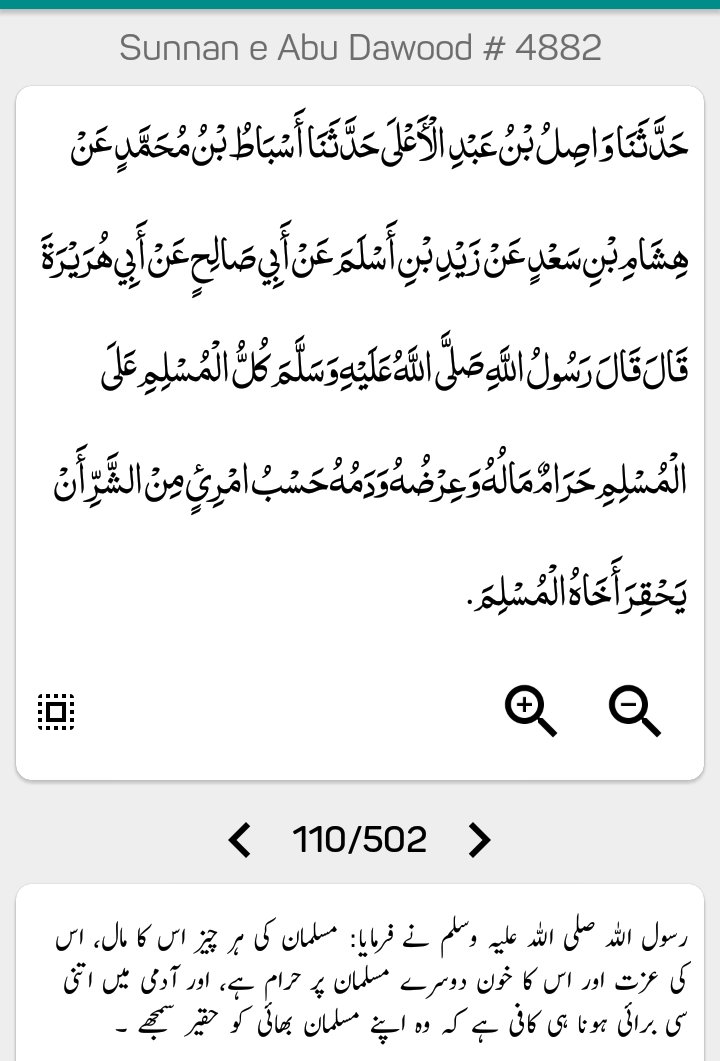 Sunnan e Abu Dawood # 4882
حَدَّثَنَا وَاصِلُ بْنُ عَبْدِ الْأَعْلَى حَدَّثَنَا أَسْبَاطُ بْنُ مُحَمَّدٍ عَنْ
هِشَامِ بْنِ سَعْدٍ عَنْ زَيْدِ بْنِ أَسْلَمَ عَنْ أَبِي صَالِحٍ عَنْ أَبِي هُرَيْرَةَ
قَالَ قَالَ رَسُولُ اللَّهِ صَلَّى اللَّهُ عَلَيْهِ وَسَلَّمَ كُلُّ الْمُسْلِمِ عَلَى
الْمُسْلِمِ حَرَامٌ مَالُهُ وَعِرْضُهُ وَدَمُهُ حَسْبُ امْرِئٍ مِنَ الشَّرِّ أَنْ
يَحْقِرَ أَخَاهُ الْمُسْلِمَ.
110/502
رسول اللہ صلی اللہ علیہ وسلم نے فرمایا: مسلمان کی ہر چیز اس کا مال، اس
کی عزت اور اس کا خون دوسرے مسلمان پر حرام ہے، اور آدمی میں اتنی
سی برائی ہونا ہی کافی ہے کہ وہ اپنے مسلمان بھائی کو حقیر سمجھے ۔